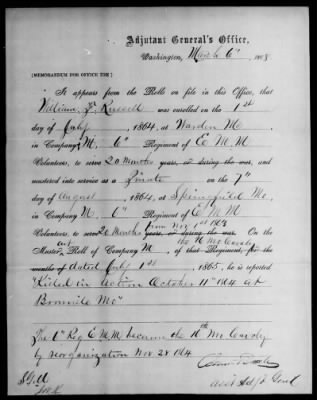 Adjutant General's Office,
Washington, March 6th, 1868
[MEMORANDUM FOR OFFICE USE]
It appears from the Rolls on file in this Office, that
William Russell was enrolled on the 1st
day of July, 1864, at Warden M.
in Company M, 6" Regiment of E M M
Volunteers, to serve 20 months years, or during the war, and
mustered into service as a Private on the 7th
day of August, 1864, at Springfield Mo,
in Company M, 6" Regiment of E M M
from Nov 1st
Volunteers, to serve 20 months years, or during the war. On the
the Mo Cavalry
Muster Roll of Company M, of that Regiment, for the
months of dated July 1st, 1865, he is reported
"Killed in Action October 11th 1864 at
Mo"
The 6" Reg E.M.M. became the 16th Mo Cavalry
by reorganization Nov 28 1864
Asst Adjt Genl